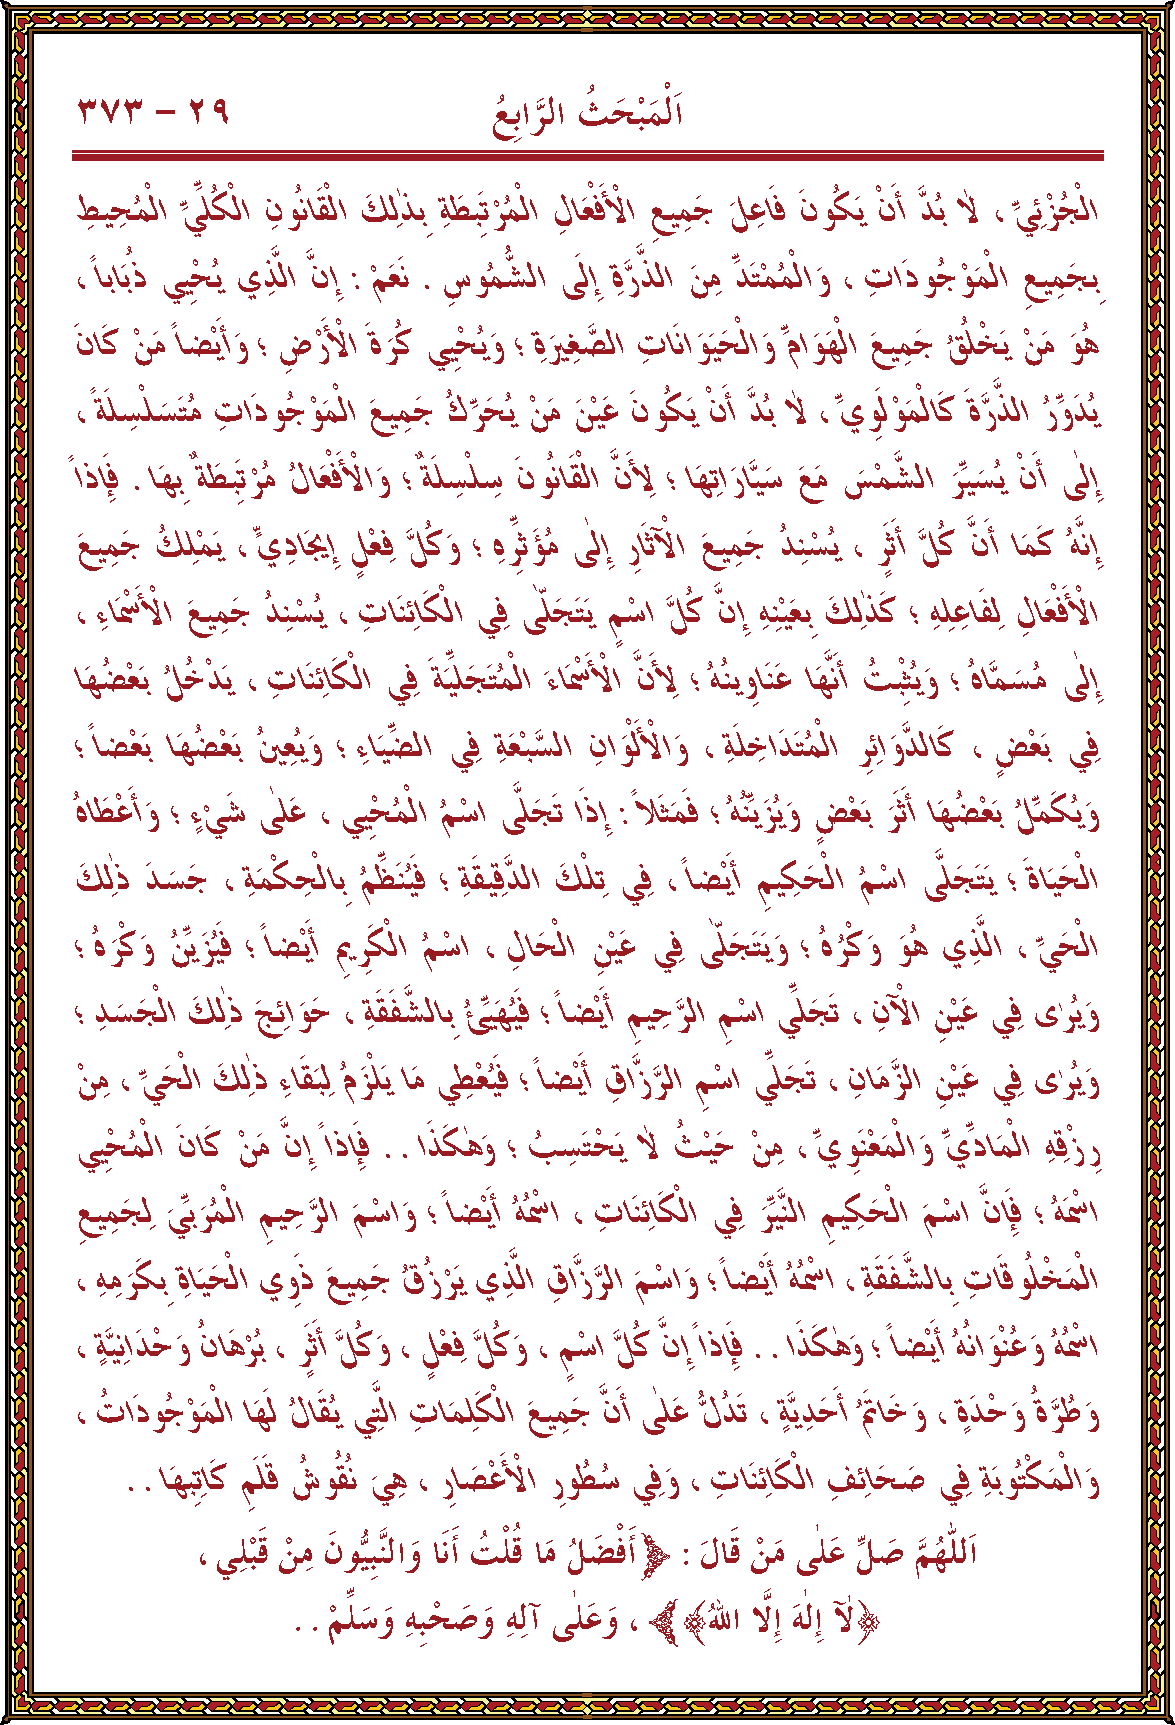 اَلْمَبْحَثُ الرَّابِعُ ٢٩ – ٣٧٣
الْجُزْئِيِّ ، لَا بُدَّ أَنْ يَكُونَ فَاعِلَ جَمِيعِ الْأَفْعَالِ الْمُرْتَبِطَةِ بِذٰلِكَ الْقَانُونِ الْكُلِّيِّ الْمُحِيطِ
بِجَمِيعِ الْمَوْجُودَاتِ ، وَالْمُمْتَدِّ مِنَ الذَّرَّةِ إِلَى الشُّمُوسِ . نَعَمْ : إِنَّ الَّذِي يُحْيِي ذُبَاباً ،
هُوَ مَنْ يَخْلُقُ جَمِيعَ الْهَوَامِّ وَالْحَيَوَانَاتِ الصَّغِيرَةِ ؛ وَيُحْيِي كُرَةَ الْأَرْضِ ؛ وَأَيْضاً مَنْ كَانَ
يُدَوِّرُ الذَّرَّةَ كَالْمَوْلَوِيِّ ، لَا بُدَّ أَنْ يَكُونَ عَيْنَ مَنْ يُحَرِّكُ جَمِيعَ الْمَوْجُودَاتِ مُتَسَلْسِلَةً ،
إِلٰى أَنْ يُسَيِّرَ الشَّمْسَ مَعَ سَيَّارَاتِهَا ؛ لِأَنَّ الْقَانُونَ سِلْسِلَةٌ ؛ وَالْأَفْعَالُ مُرْتَبِطَةٌ بِهَا . فَإِذاً
إِنَّهُ كَمَا أَنَّ كُلَّ أَثَرٍ ، يُسْنِدُ جَمِيعَ الْآثَارِ إِلٰى مُؤَثِّرِهِ ؛ وَكُلَّ فِعْلٍ إِيجَادِيٍّ ، يَمْلِكُ جَمِيعَ
الْأَفْعَالِ لِفَاعِلِهِ ؛ كَذٰلِكَ بِعَيْنِهِ إِنَّ كُلَّ اسْمٍ يَتَجَلّٰى فِي الْكَائِنَاتِ ، يُسْنِدُ جَمِيعَ الْأَسْمَاءِ ،
إِلٰى مُسَمَّاهُ ؛ وَيُثْبِتُ أَنَّهَا عَنَاوِينُهُ ؛ لِأَنَّ الْأَسْمَاءَ الْمُتَجَلِّيَةَ فِي الْكَائِنَاتِ ، يَدْخُلُ بَعْضُهَا
فِي بَعْضٍ ، كَالدَّوَائِرِ الْمُتَدَاخِلَةِ ، وَالْأَلْوَانِ السَّبْعَةِ فِي الضِّيَاءِ ؛ وَيُعِينُ بَعْضُهَا بَعْضاً ؛
وَيُكَمِّلُ بَعْضُهَا أَثَرَ بَعْضٍ وَيُزَيِّنُهُ ؛ فَمَثَلاً : إِذَا تَجَلَّى اسْمُ الْمُحْيِي ، عَلٰى شَيْءٍ ؛ وَأَعْطَاهُ
الْحَيَاةَ ؛ يَتَجَلَّى اسْمُ الْحَكِيمِ أَيْضاً ، فِي تِلْكَ الدَّقِيقَةِ ؛ فَيُنَظِّمُ بِالْحِكْمَةِ ، جَسَدَ ذٰلِكَ
الْحَيِّ ، الَّذِي هُوَ وَكْرُهُ ؛ وَيَتَجَلّٰى فِي عَيْنِ الْحَالِ ، اسْمُ الْكَرِيمِ أَيْضاً ؛ فَيُزَيِّنُ وَكْرَهُ ؛
وَيُرٰى فِي عَيْنِ الْآنِ ، تَجَلِّي اسْمِ الرَّحِيمِ أَيْضاً ؛ فَيُهَيِّئُ بِالشَّفَقَةِ ، حَوَائِجَ ذٰلِكَ الْجَسَدِ ؛
وَيُرٰى فِي عَيْنِ الزَّمَانِ ، تَجَلِّي اسْمِ الرَّزَّاقِ أَيْضاً ؛ فَيُعْطِي مَا يَلْزَمُ لِبَقَاءِ ذٰلِكَ الْحَيِّ ، مِنْ
رِزْقِهِ الْمَادِّيِّ وَالْمَعْنَوِيِّ ، مِنْ حَيْثُ لَا يَحْتَسِبُ ؛ وَهٰكَذَا . . فَإِذاً إِنَّ مَنْ كَانَ الْمُحْيِي
اسْمَهُ ؛ فَإِنَّ اسْمَ الْحَكِيمِ النَّيِّرَ فِي الْكَائِنَاتِ ، اسْمُهُ أَيْضاً ؛ وَاسْمَ الرَّحِيمِ الْمُرَبِّيَ لِجَمِيعِ
الْمَخْلُوقَاتِ بِالشَّفَقَةِ ، اسْمُهُ أَيْضاً ؛ وَاسْمَ الرَّزَّاقِ الَّذِي يَرْزُقُ جَمِيعَ ذَوِي الْحَيَاةِ بِكَرَمِهِ ،
اسْمُهُ وَعُنْوَانُهُ أَيْضاً ؛ وَهٰكَذَا . . فَإِذاً إِنَّ كُلَّ اسْمٍ ، وَكُلَّ فِعْلٍ ، وَكُلَّ أَثَرٍ ، بُرْهَانُ وَحْدَانِيَّةٍ ،
وَطُرَّةُ وَحْدَةٍ ، وَخَاتَمُ أَحَدِيَّةٍ ، تَدُلُّ عَلٰى أَنَّ جَمِيعَ الْكَلِمَاتِ الَّتِي يُقَالُ لَهَا الْمَوْجُودَاتُ ،
وَالْمَكْتُوبَةِ فِي صَحَائِفِ الْكَائِنَاتِ ، وَفِي سُطُورِ الْأَعْصَارِ ، هِيَ نُقُوشُ قَلَمِ كَاتِبِهَا . .
اَللّٰهُمَّ صَلِّ عَلٰى مَنْ قَالَ : ﴿أَفْضَلُ مَا قُلْتُ أَنَا وَالنَّبِيُّونَ مِنْ قَبْلِي ،
﴿لَآ إِلٰهَ إِلَّا اللّٰهُ﴾﴾ ، وَعَلٰى آلِهِ وَصَحْبِهِ وَسَلِّمْ . .